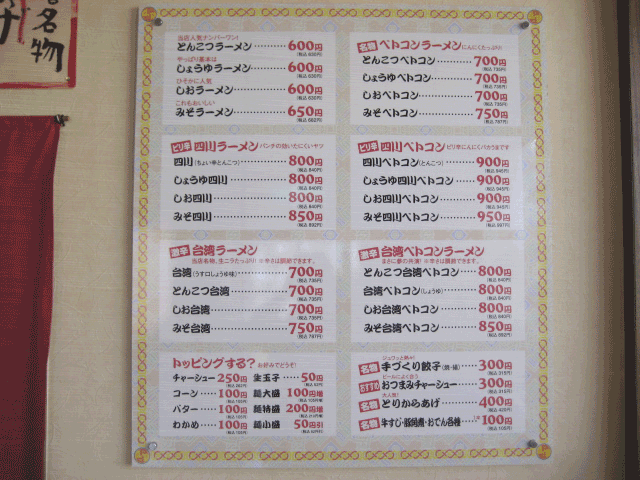 名物
当店人気ナンバーワン!
とんこつラーメン…………600円
(税込630円)
やっぱり基本は
しょうゆラーメン…………600円
(税込630円)
ひそかに人気
しおラーメン…………600円
(税込630円)
これもおいしい
みそラーメン…………650円
(税込682円)
名物 ベトコンラーメン にんにくたっぷり!
とんこつベトコン…………700円
(税込735円)
しょうゆベトコン…………700円
(税込735円)
しおベトコン…………700円
(税込735円)
みそベトコン…………750円
(税込787円)
ピリ辛 四川ラーメン パンチの効いたにくいヤツ
四川(ちょい辛とんこつ)…………800円
(税込840円)
しょうゆ四川…………800円
(税込840円)
しお四川…………800円
(税込840円)
みそ四川…………850円
(税込892円)
ピリ辛 四川ベトコン ピリ辛にんにくバカうまです
四川ベトコン(とんこつ)…………900円
(税込945円)
しょうゆ四川ベトコン…………900円
(税込945円)
しお四川ベトコン…………900円
(税込945円)
みそ四川ベトコン…………950円
(税込997円)
激辛 台湾ラーメン
当店名物、生ニラたっぷり!※辛さは調節できます。
台湾(うすロしょうゆ味)…………700円
(税込735円)
とんこつ台湾…………700円
(税込735円)
しお台湾…………700円
(税込735円)
みそ台湾…………750円
(税込787円)
激辛 台湾ベトコンラーメン
まさに夢の共演!※辛さは調節できます。
とんこつ台湾ベトコン……800円
(税込840円)
台湾ベトコン(しょうゆ)……800円
(税込840円)
しお台湾ベトコン…………800円
(税込840円)
みそ台湾ベトコン…………850円
(税込892円)
トッピングする? お好みでどうぞ!
チャーシュー250円 生玉子……50円
コーン……100円 麺大盛 100円増
バター……100円 麺特盛 200円増
わかめ……100円 麺小盛 50円引
ジュワッと熱々!
名物 手づくり餃子(焼・揚)……300円
(税込315円)
ビールによく合う
おすすめ おつまみチャーシュー……300円
(税込315円)
大人気!
名物 とりからあげ…………400円
(税込420円)
名物 牛すじ・豚角煮・おでん各種…100円
(税込105円)